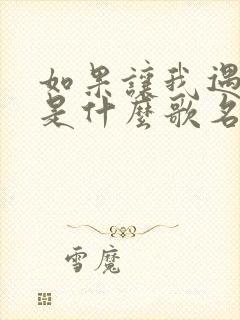 如果讓我遇
是什麼歌名
雪魔